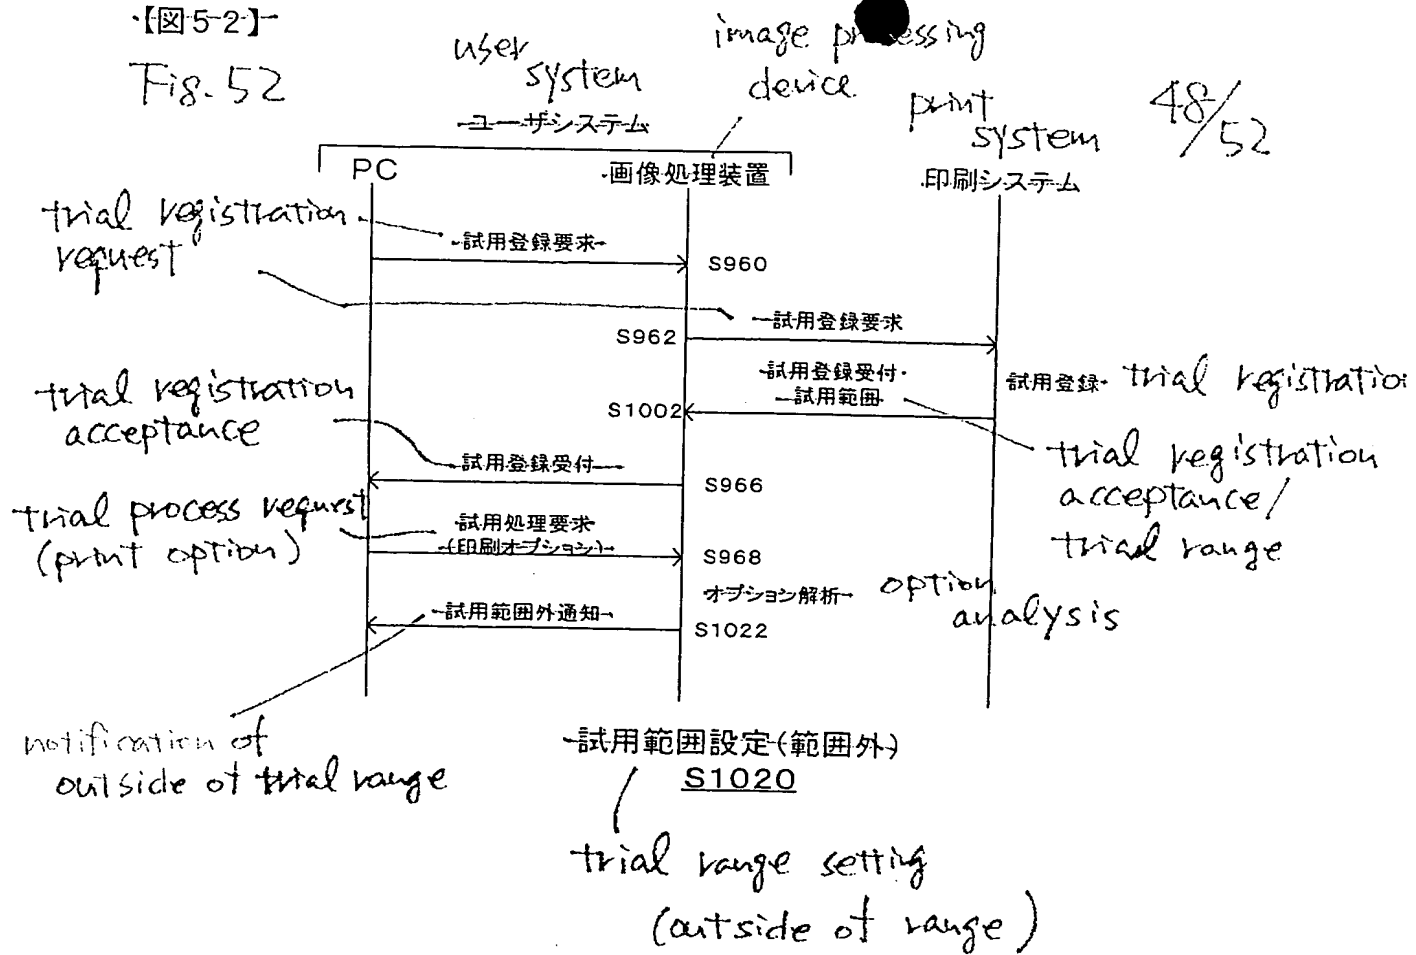 【図52】
Fig. 52
user
system
image processing
device
print
system
48/52
ユーザシステム
PC
画像処理装置
印刷システム
trial registration
request
試用登録要求
S960
試用登録要求
S962
試用登録受付・
試用範囲
試用登録
trial registration
S1002
trial registration
acceptance
trial registration
acceptance/
trial range
試用登録受付
S966
trial process request
(print option)
試用処理要求
(印刷オプション)
S968
オプション解析
option
analysis
試用範囲外通知
S1022
notification of
outside of trial range
試用範囲設定(範囲外)
S1020
trial range setting
(outside of range)